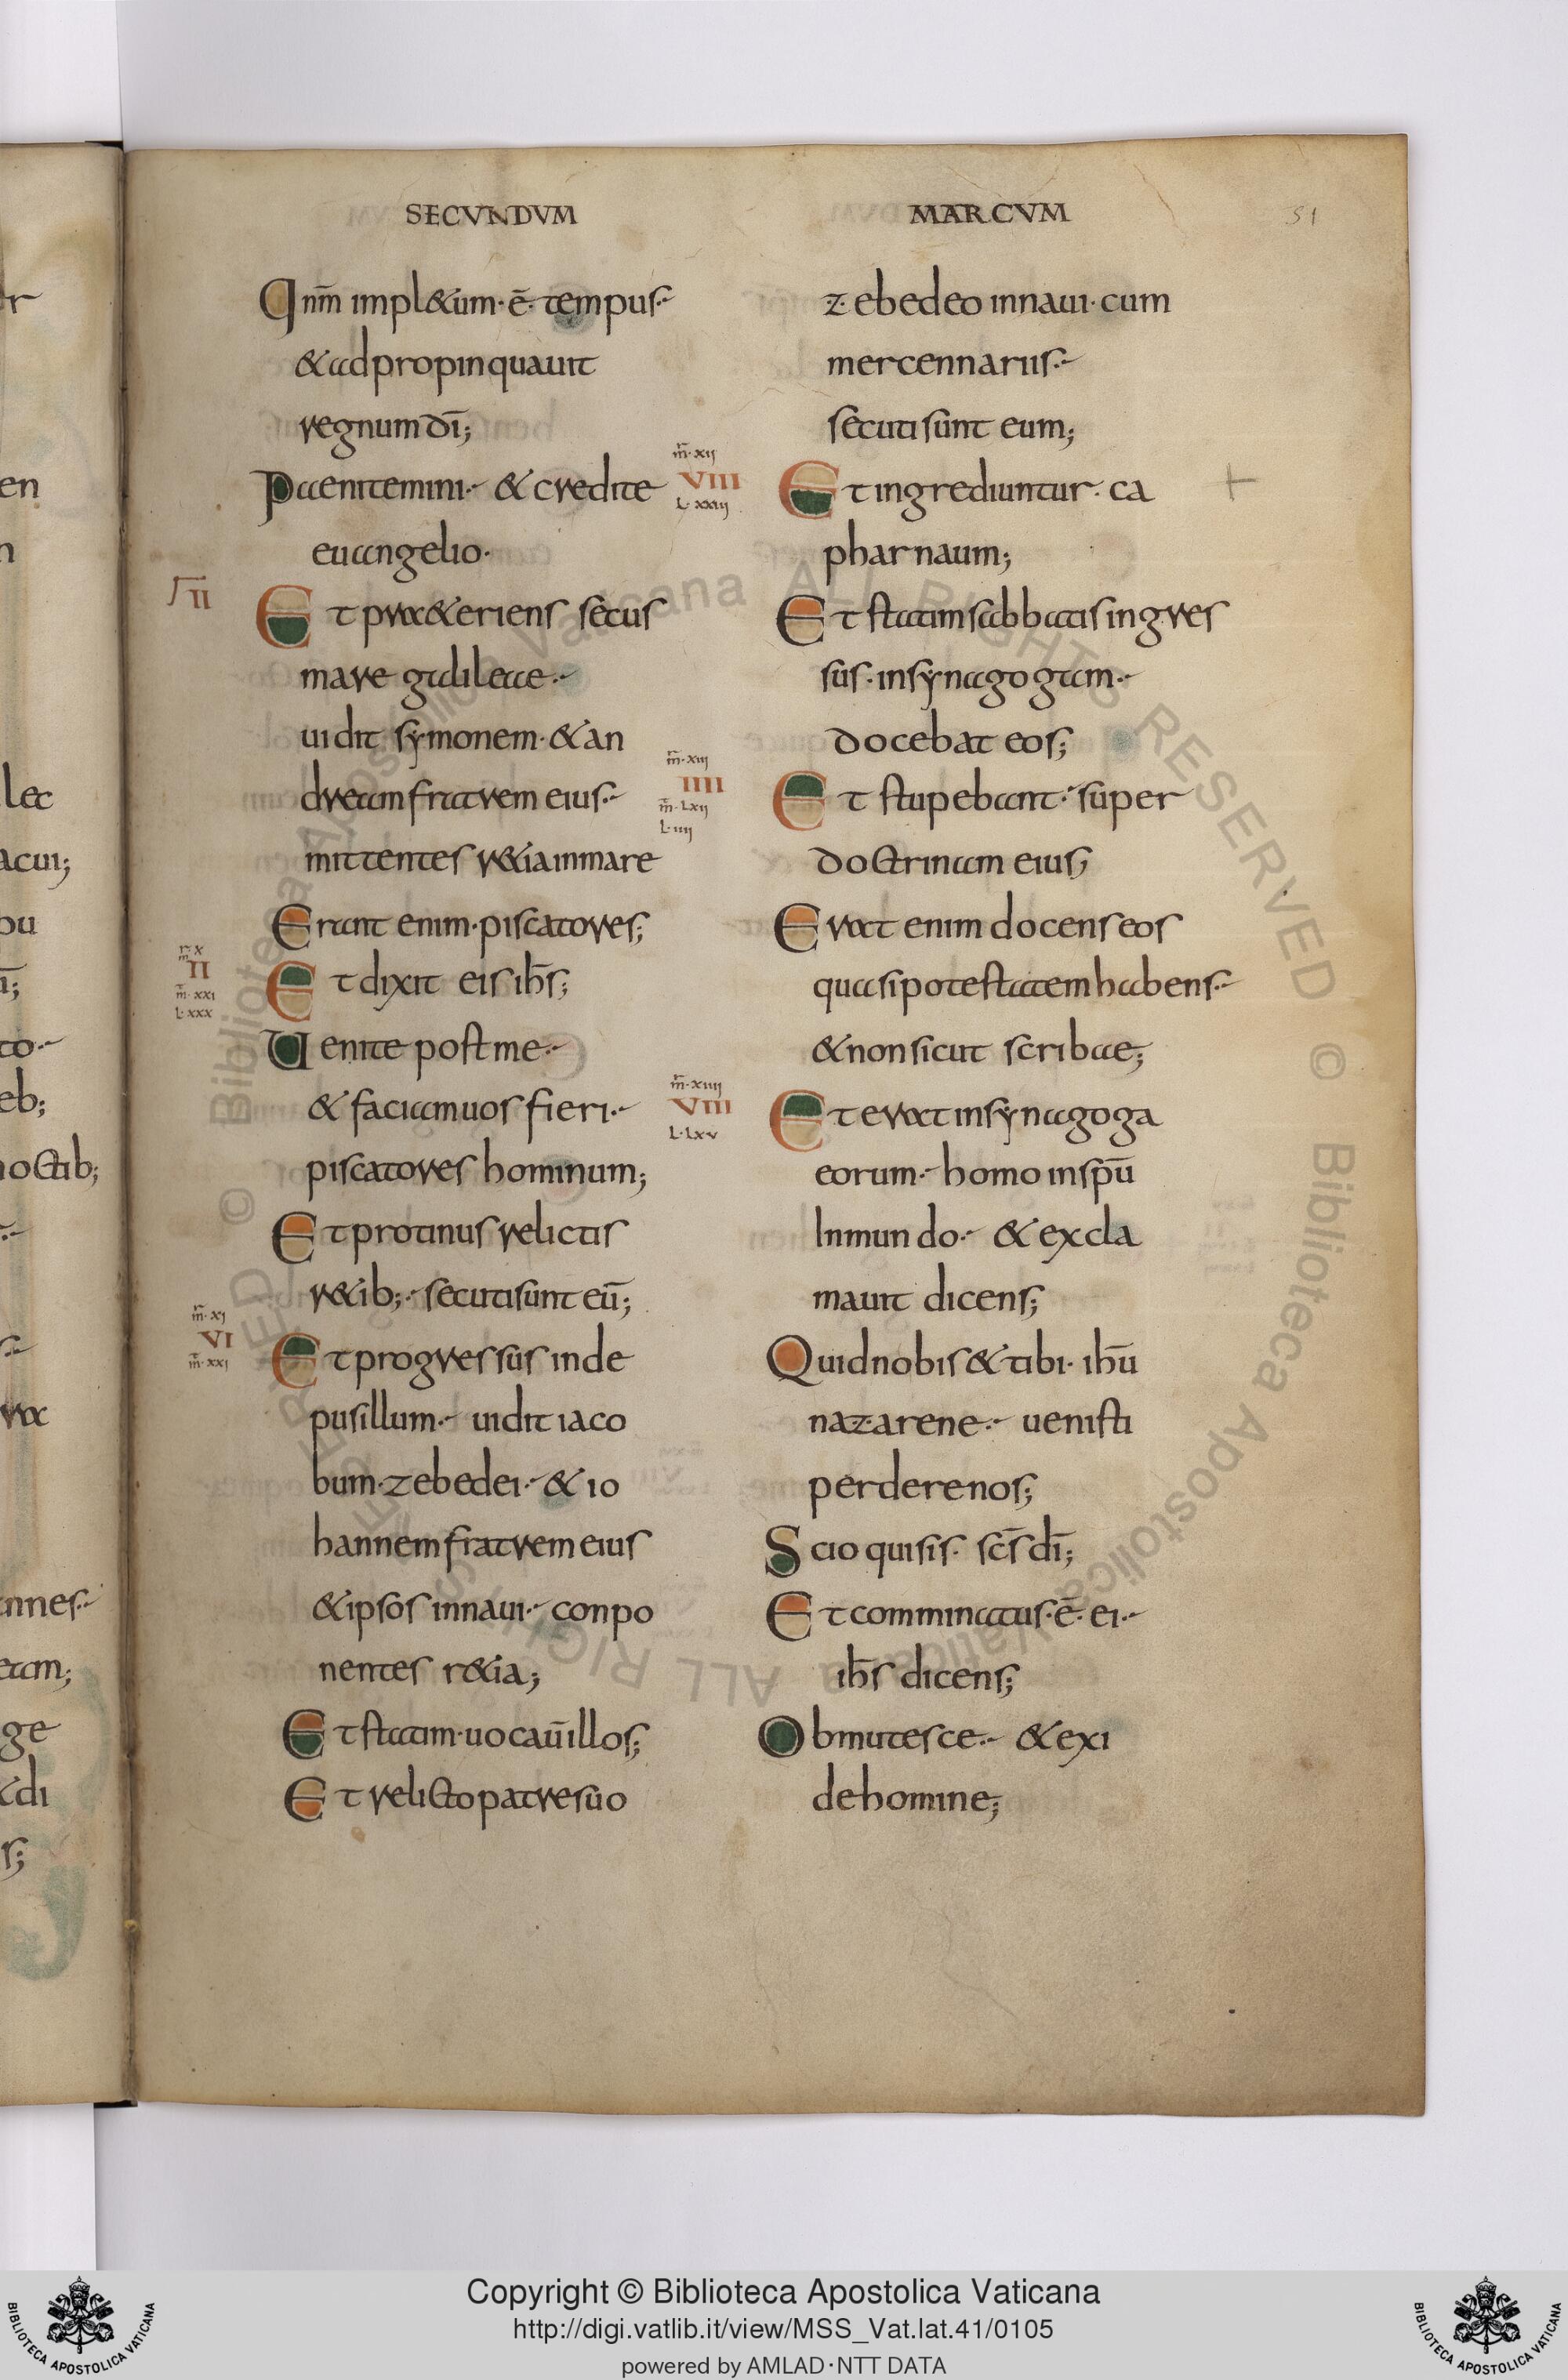 SECVNDVM
MARCVM
51
Qnm̄ impl&um·ē·tempus·
&adpropinquauit
regnum dī;
Paenitemini· & credite
euangelio·
II
Et pr&eriens secus
mare galileae·
uidit symonem·&an
dream fratrem eius·
mittentes r&ia in mare
Erant enim·piscatores;
m̄·x
II
m̄·xxi
L·xxx
Et dixit eis ih̄s;
Uenite post me·
& faciam uos fieri·
piscatores hominum;
Et protinus relictis
r&ib;· secuti sunt eū;
m̄·xj
VI
m̄·xxj
Et progressus inde
pusillum· uidit iaco
bum·zebedei·&io
hannem fratrem eius
&ipsos in naui· conpo
nentes r&ia;
Et statim·uocauīillos;
Et relicto patre suo
zebedeo in naui·cum
mercennariis·
secuti sunt eum;
m̄·xij
VIII
L·xxiij
Et ingrediuntur·ca
pharnaum;
Et statim sabbatis ingres
sus·in synagogam·
docebat eos;
m̄·xiij
IIII
m̄·Lxij
L·iiij
Et stupebant· super
doctrinam eius;
Erat enim docens eos
quasi potestatem habens·
&non sicut scribae;
m̄·xiiij
VIII
L·Lxv
Et erat in synagoga
eorum· homo in spū
Inmundo· & excla
mauit dicens;
Quid nobis & tibi· ih̄u
nazarene· uenisti
perdere nos;
Scio qui sis· sc̄s dī;
Et comminatus·ē·ei·
ih̄s dicens;
Obmutesce· & exi
de homine;
© Biblioteca Apostolica Vaticana ALL RIGHTS RESERVED
© Biblioteca Apostolica Vaticana ALL RIGHTS RESERVED
Copyright © Biblioteca Apostolica Vaticana
http://digi.vatlib.it/view/MSS_Vat.lat.41/0105
powered by AMLAD·NTT DATA
BIBLIOTECA APOSTOLICA VATICANA
BIBLIOTECA APOSTOLICA VATICANA